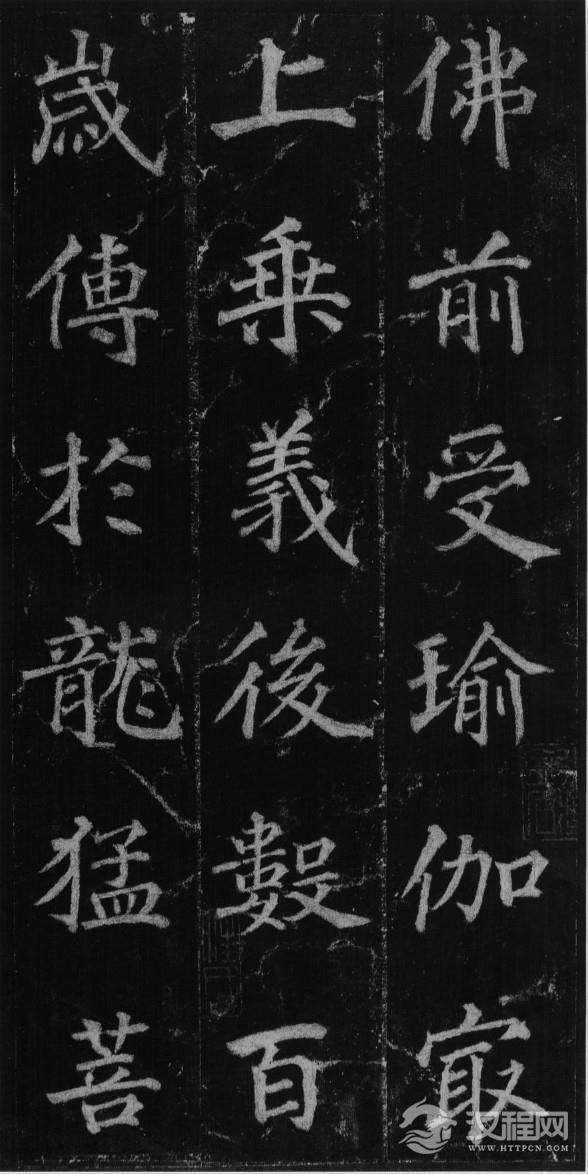 佛前受瑜伽㝡
上乗義後數百
歳傳於龍猛菩
汉程网
WWW.HTTPCN.COM